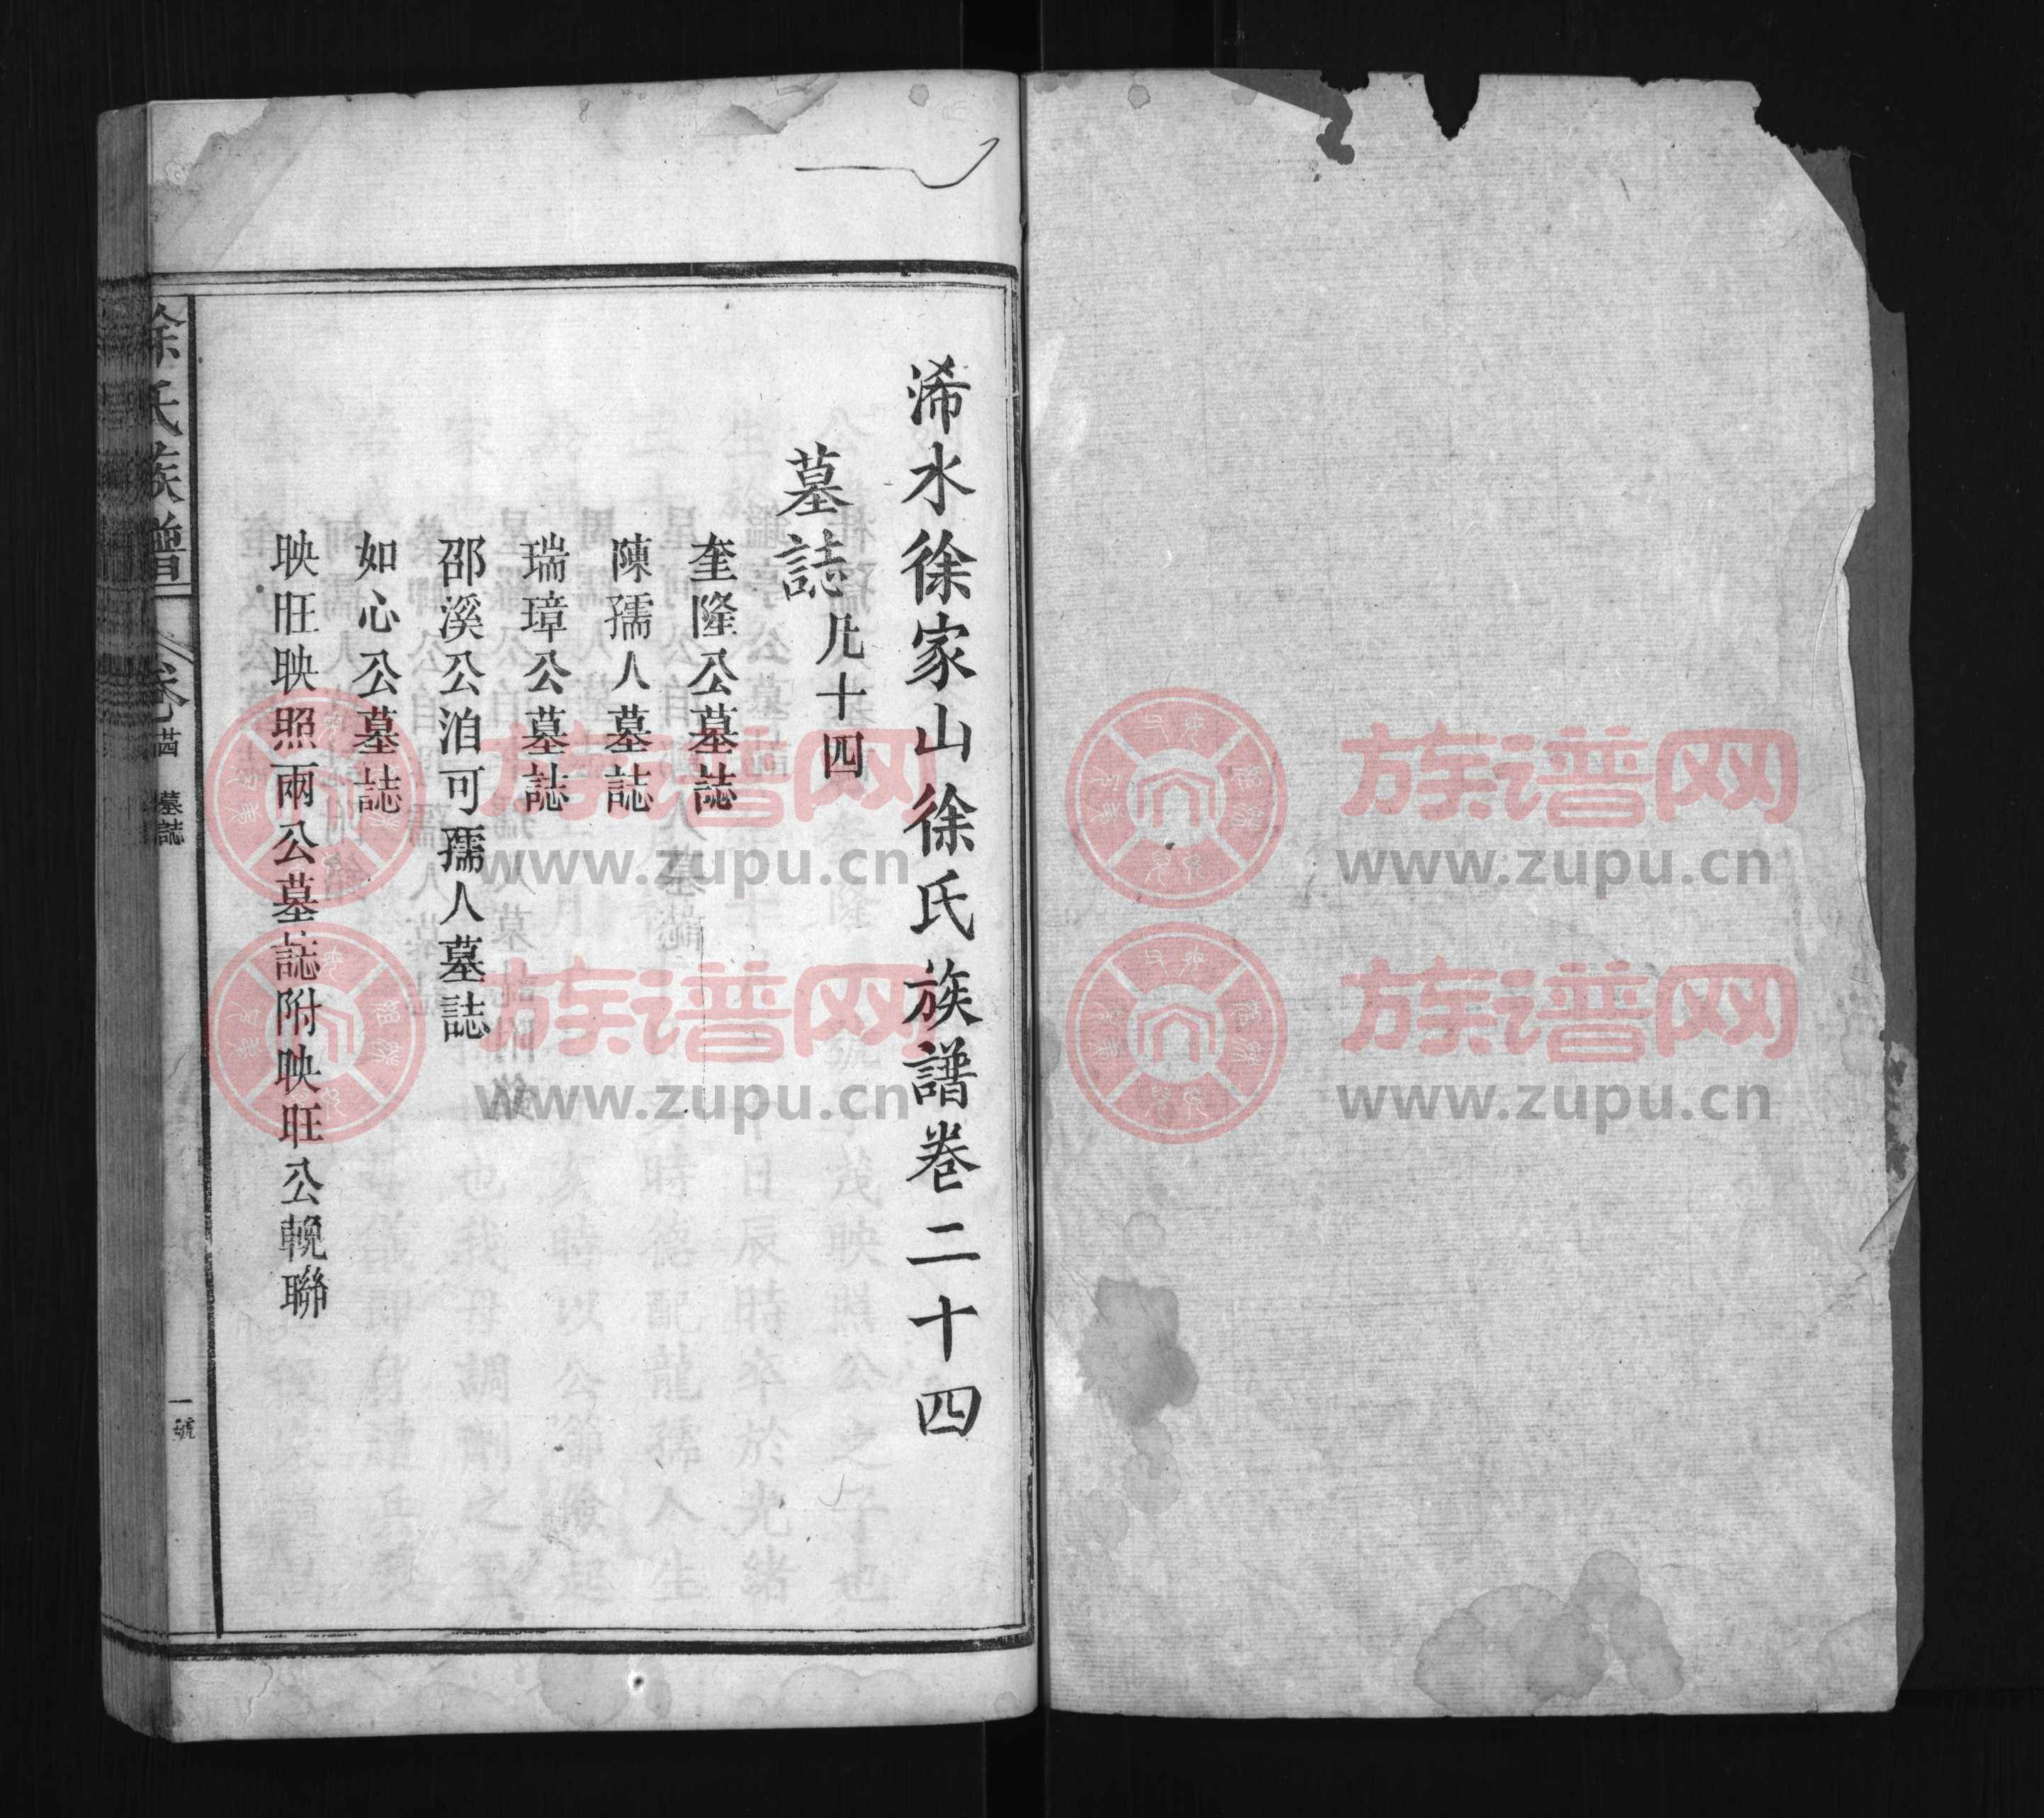 浠水徐家山徐氏族譜卷二十四
墓誌凡十四
奎隆公墓誌
陳孺人墓誌
瑞璋公墓誌
邵溪公洎可孺人墓誌
如心公墓誌
映旺映照兩公墓誌附映旺公輓聯
徐氏族譜
卷廿四 墓誌
一號
族谱网
www.zupu.cn
族谱网
www.zupu.cn
族谱网
www.zupu.cn
族谱网
www.zupu.cn